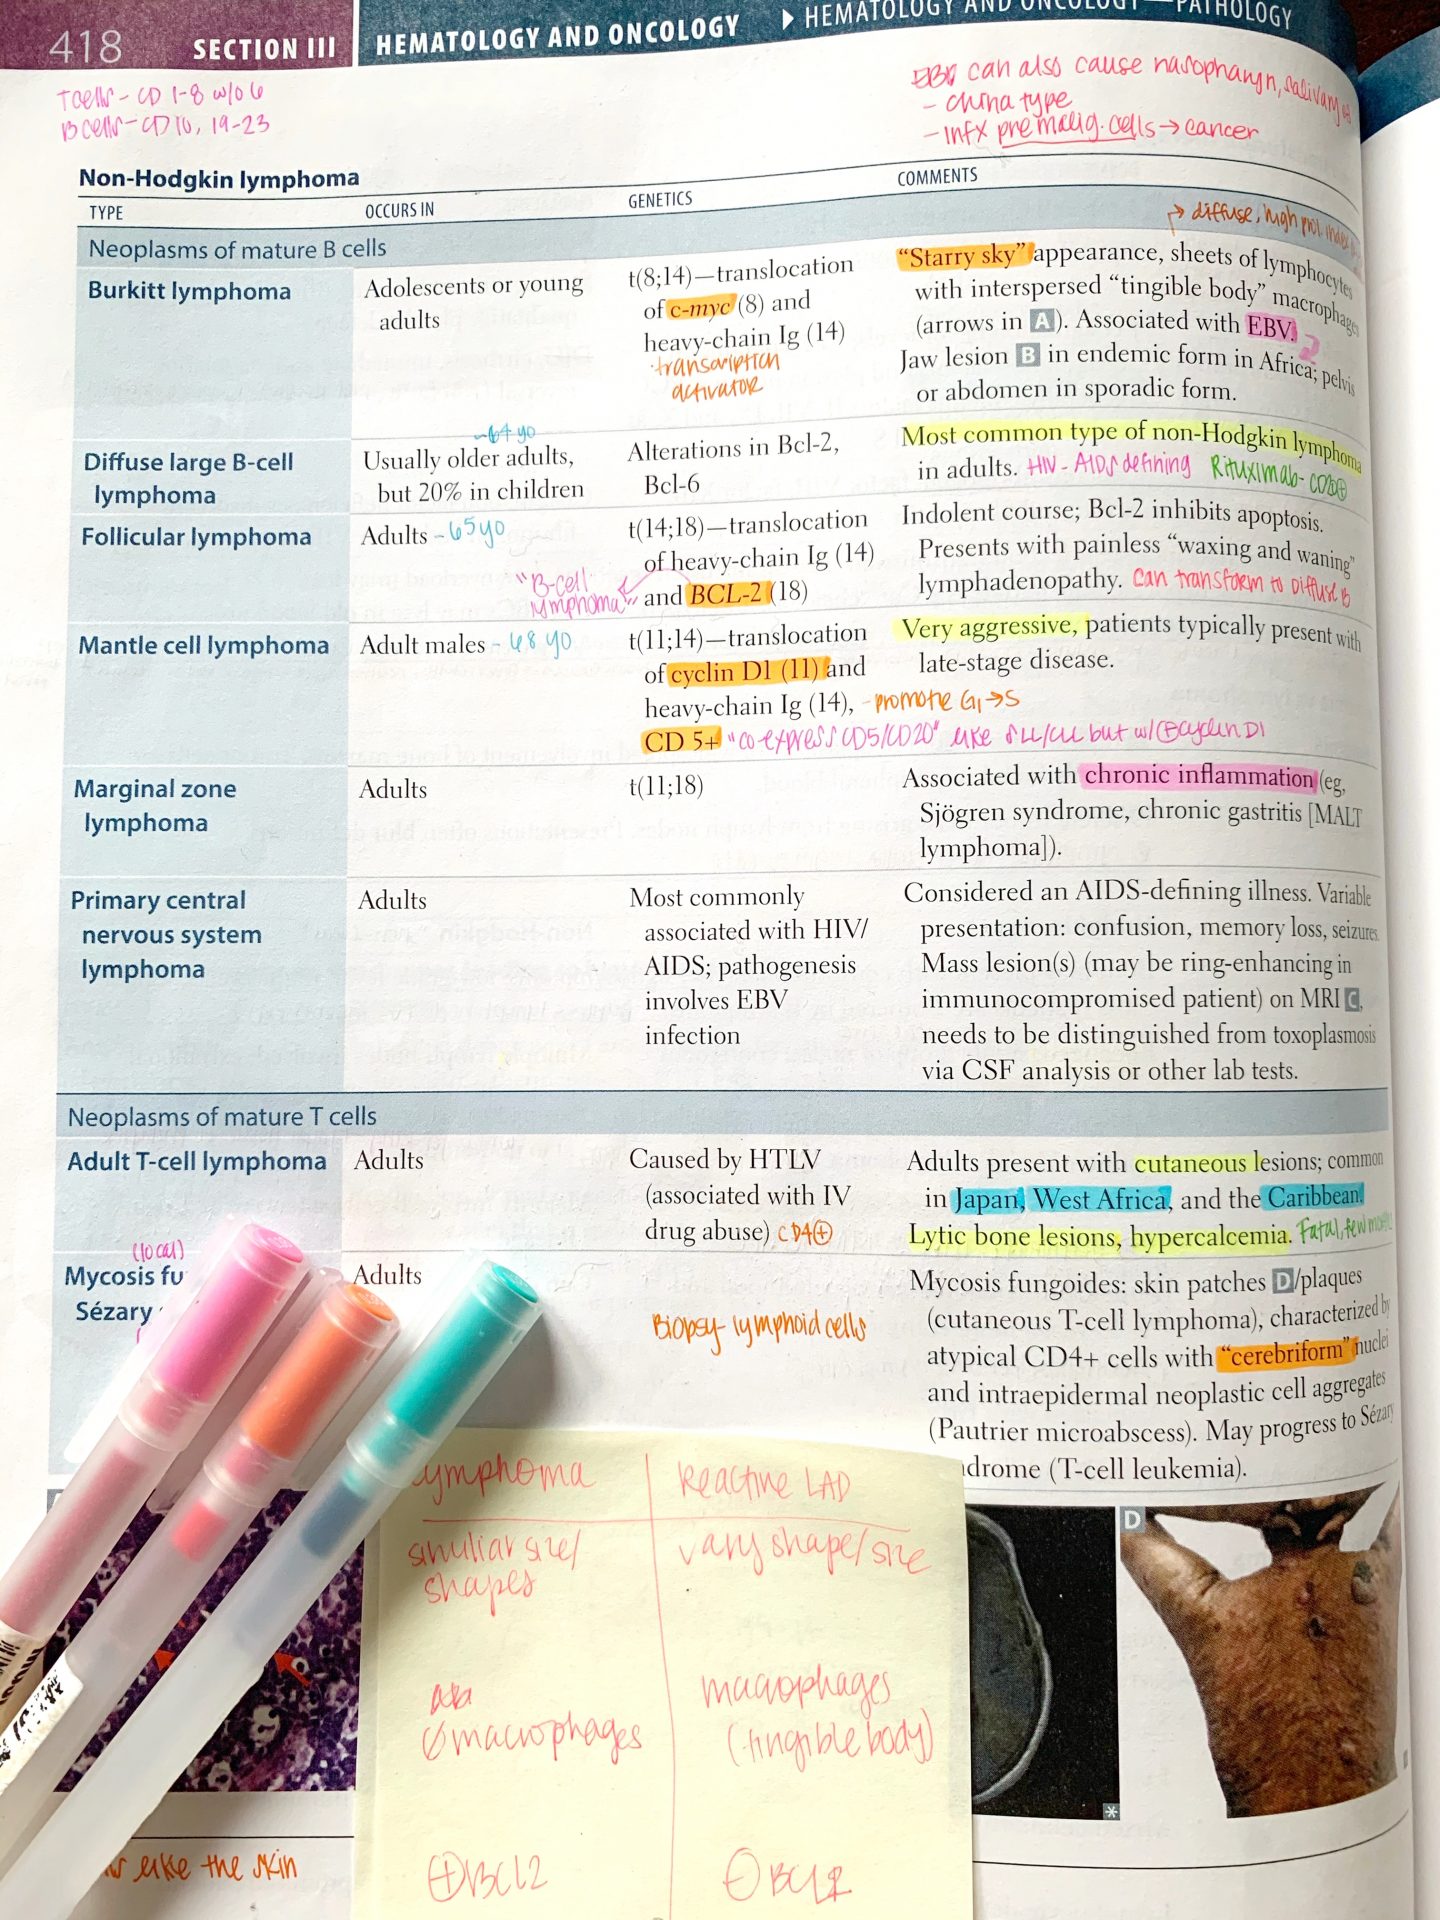 418 SECTION III HEMATOLOGY AND ONCOLOGY ▶ HEMATOLOGY AND ONCOLOGY—PATHOLOGY
Tcells - CD 1-8 w/o 6
B cells - CD 10, 19-23
EBV can also cause nasopharyn, salivary
- china type
- infx premalig. cells → cancer
Non-Hodgkin lymphoma
TYPE OCCURS IN GENETICS COMMENTS
Neoplasms of mature B cells
→ diffuse, high prol. index
Burkitt lymphoma
Adolescents or young
adults
t(8;14)—translocation
of c-myc (8) and
heavy-chain Ig (14)
transcription
activator
“Starry sky” appearance, sheets of lymphocytes
with interspersed “tingible body” macrophages
(arrows in A). Associated with EBV.
Jaw lesion B in endemic form in Africa; pelvis
or abdomen in sporadic form.
Diffuse large B-cell
lymphoma
~64 yo
Usually older adults,
but 20% in children
Alterations in Bcl-2,
Bcl-6
Most common type of non-Hodgkin lymphoma
in adults. HIV - AIDS defining Rituximab- CD20⊕
Follicular lymphoma
Adults ~65yo
t(14;18)—translocation
of heavy-chain Ig (14)
and BCL-2 (18)
"B-cell
lymphoma"
Indolent course; Bcl-2 inhibits apoptosis.
Presents with painless “waxing and waning”
lymphadenopathy. Can transform to Diffuse B
Mantle cell lymphoma
Adult males ~68 yo
t(11;14)—translocation
of cyclin D1 (11) and
heavy-chain Ig (14), -promote G1→S
CD 5+ "co-express CD5/CD20" like SLL/CLL but w/⊕cyclin D1
Very aggressive, patients typically present with
late-stage disease.
Marginal zone
lymphoma
Adults
t(11;18)
Associated with chronic inflammation (eg,
Sjögren syndrome, chronic gastritis [MALT
lymphoma]).
Primary central
nervous system
lymphoma
Adults
Most commonly
associated with HIV/
AIDS; pathogenesis
involves EBV
infection
Considered an AIDS-defining illness. Variable
presentation: confusion, memory loss, seizures.
Mass lesion(s) (may be ring-enhancing in
immunocompromised patient) on MRI C,
needs to be distinguished from toxoplasmosis
via CSF analysis or other lab tests.
Neoplasms of mature T cells
Adult T-cell lymphoma
Adults
Caused by HTLV
(associated with IV
drug abuse) CD4⊕
Adults present with cutaneous lesions; common
in Japan, West Africa, and the Caribbean.
Lytic bone lesions, hypercalcemia. Fatal, few
(local)
Mycosis fu
Sézary
Adults
Biopsy- lymphoid cells
Mycosis fungoides: skin patches D/plaques
(cutaneous T-cell lymphoma), characterized by
atypical CD4+ cells with “cerebriform” nuclei
and intraepidermal neoplastic cell aggregates
(Pautrier microabscess). May progress to Sézary
drome (T-cell leukemia).
lymphoma Reactive LAD
similiar size/ vary shape/size
shapes
∅macrophages
macrophages
(tingible body)
⊕BCL2 ⊖BCL2
D
like the skin